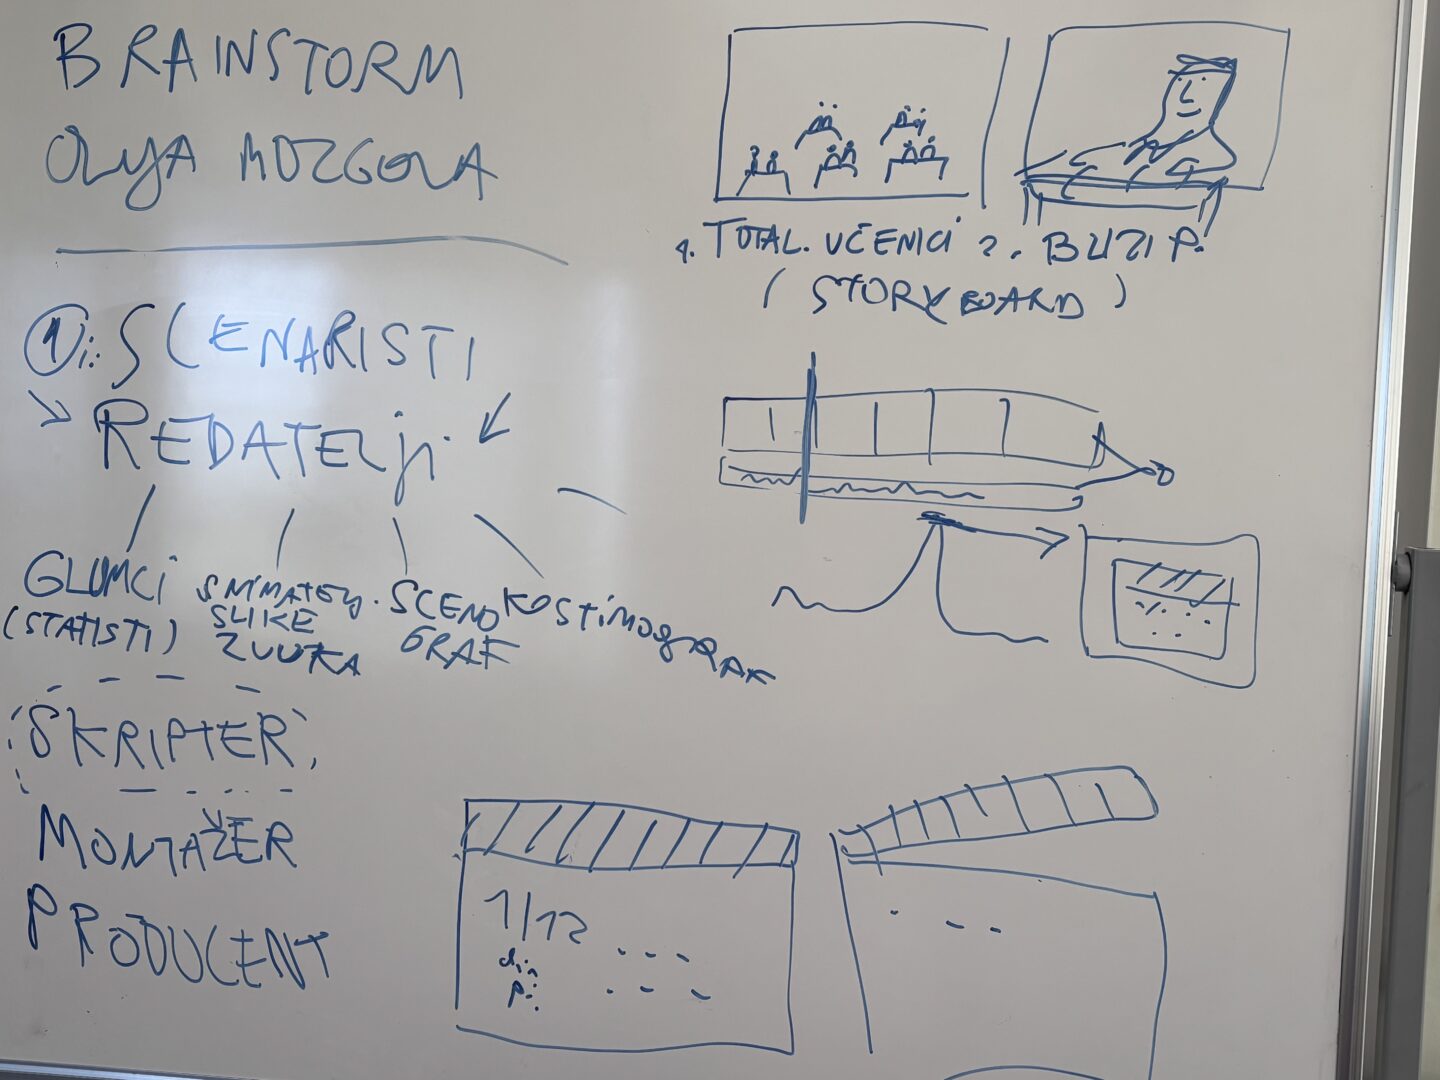 BRAINSTORM
OLUJA MOZGOVA
1. SCENARISTI
REDATELJI
GLUMCI
(STATISTI)
SNIMATELJ.
SLIKE
ZVUKA
SCENO
GRAF
KOSTIMOGRAF
SKRIPTER
MONTAŽER
PRODUCENT
1. TOTAL. UČENICI 2. BLIZI P.
(STORYBOARD)
1/12